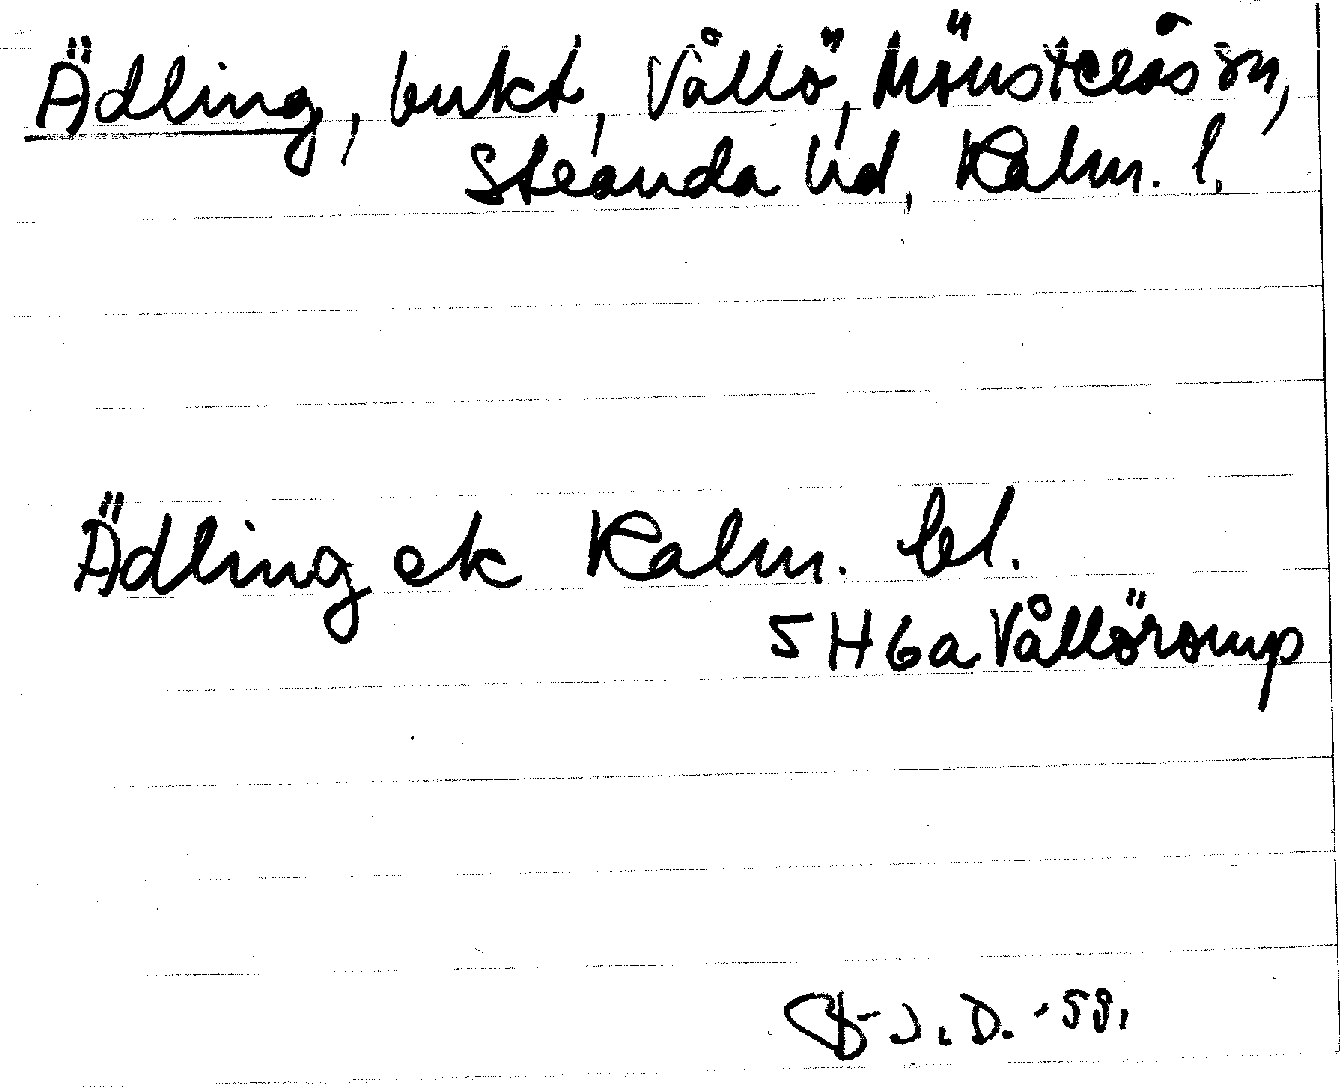 Ädling, bukt, Vållö, Mönsterås sn,
Stranda hd, Kalm. l.
Ädling ek Kalm. bl.
5 H 6a Vållöromp
J. D. -58.